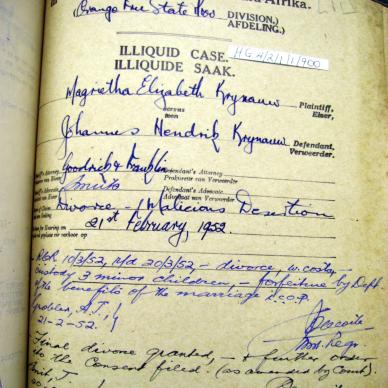 (Orange Free State
DIVISION.)
AFDELING.)
ILLIQUID CASE.
ILLIQUIDE SAAK.
HG 4/2/1/1/900
Magrietha Elizabeth Krynauw
Plaintiff.
Eiser,
versus
teen
Johannes Hendrik Krynauw
Defendant.
Verweerder.
Goodrick & Franklin
Defendant's Attorney
Prokureur van Verweerder
Smuts
Defendant's Advocate.
Advokaat van Verweerder
Divorce - Malicious Desertion
21st February, 1952.
RCR 10/3/52, r/d 20/3/52, - divorce, w. costs,
custody 3 minor children, - forfeiture by Deft.
of the benefits of the marriage i.c.o.p.
Grobler, A.J.,
21-2-52.
Final divorce granted, - & further order
to the Consent filed. (as amended by Court).